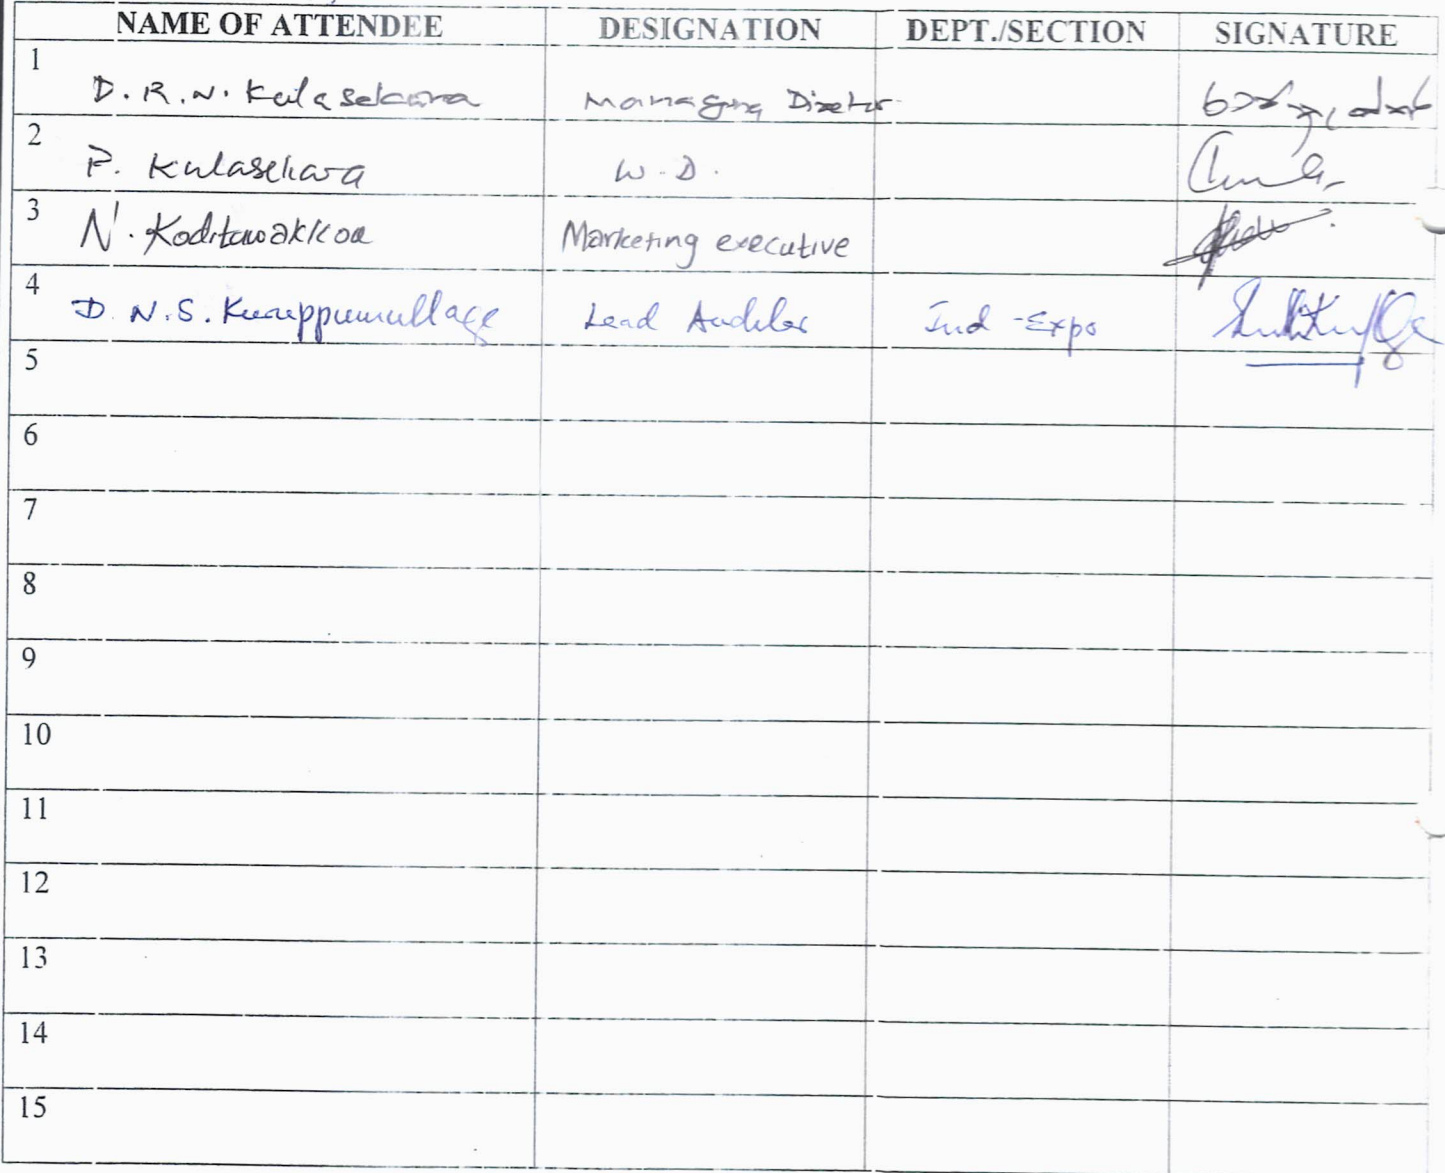 NAME OF ATTENDEE DESIGNATION DEPT./SECTION SIGNATURE
1 D. R. N. Kulasekara Managing Director
2 P. Kulasekara W. D.
3 N. Koditawakkoa Marketing executive
4 D. N. S. Kuruppumullage Lead Auditor Ind-Expo
5
6
7
8
9
10
11
12
13
14
15